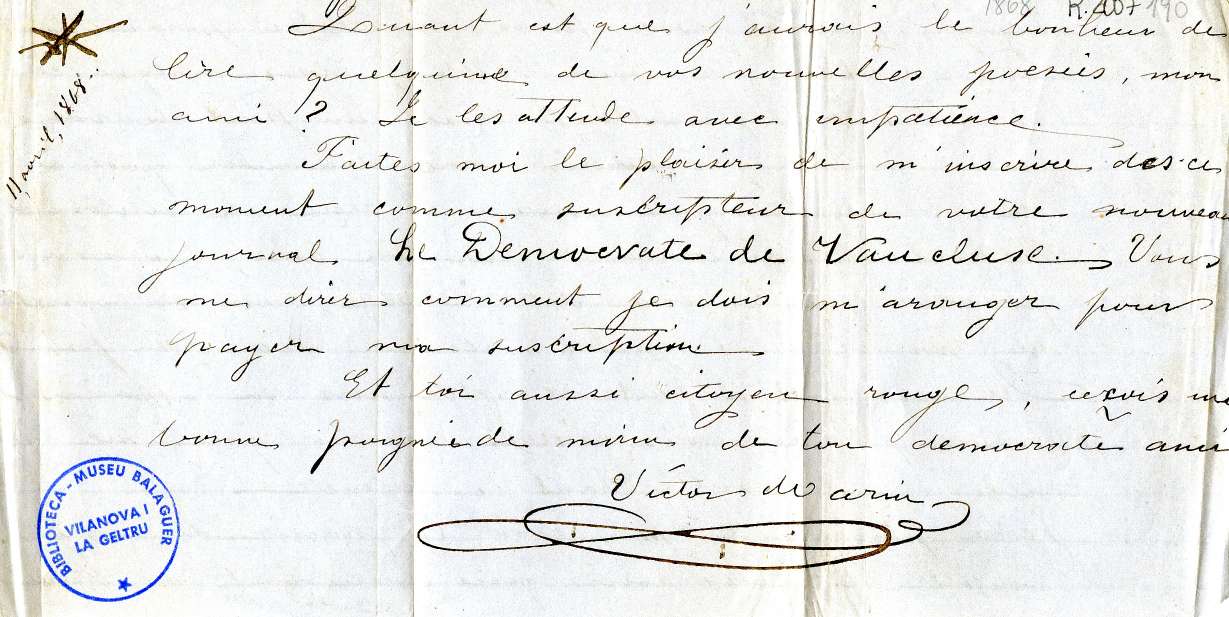 1868 R. 407 190
Quant est que j'aurais le bonheur de
lire quelqu'une de vos nouvelles poesies, mon
ami? Je les attends avec impatience.
11, avril, 1868..
Faites moi le plaisir de m'inscrire des ce
moment comme suscripteur de votre nouveau
journal Le Democrate de Vaucluse. Vous
me direz comment je dois m'aranger pour
payer ma suscription.
Et toi aussi citoyen rouge, reçois une
bonne poignée de mins de ton democrate ami
Victor
BIBLIOTECA - MUSEU BALAGUER
VILANOVA I
LA GELTRU